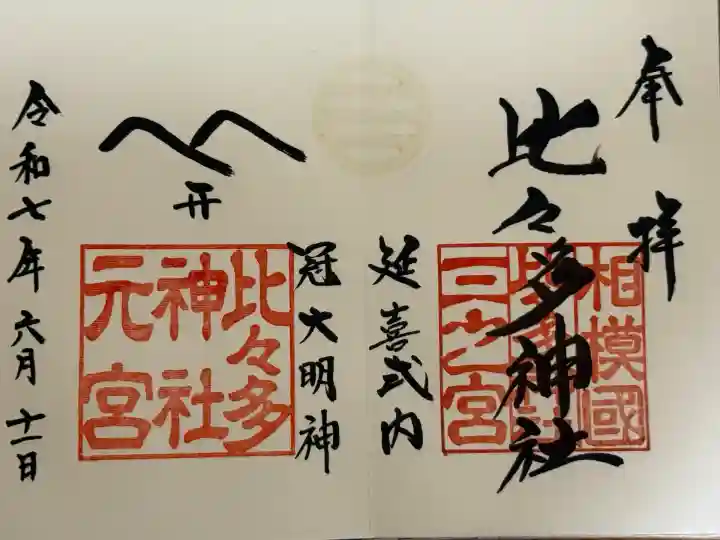 奉拝
比々多神社
相模國
三之宮
延喜式内
冠大明神
开
比々多
神社
元宮
令和七年六月十一日